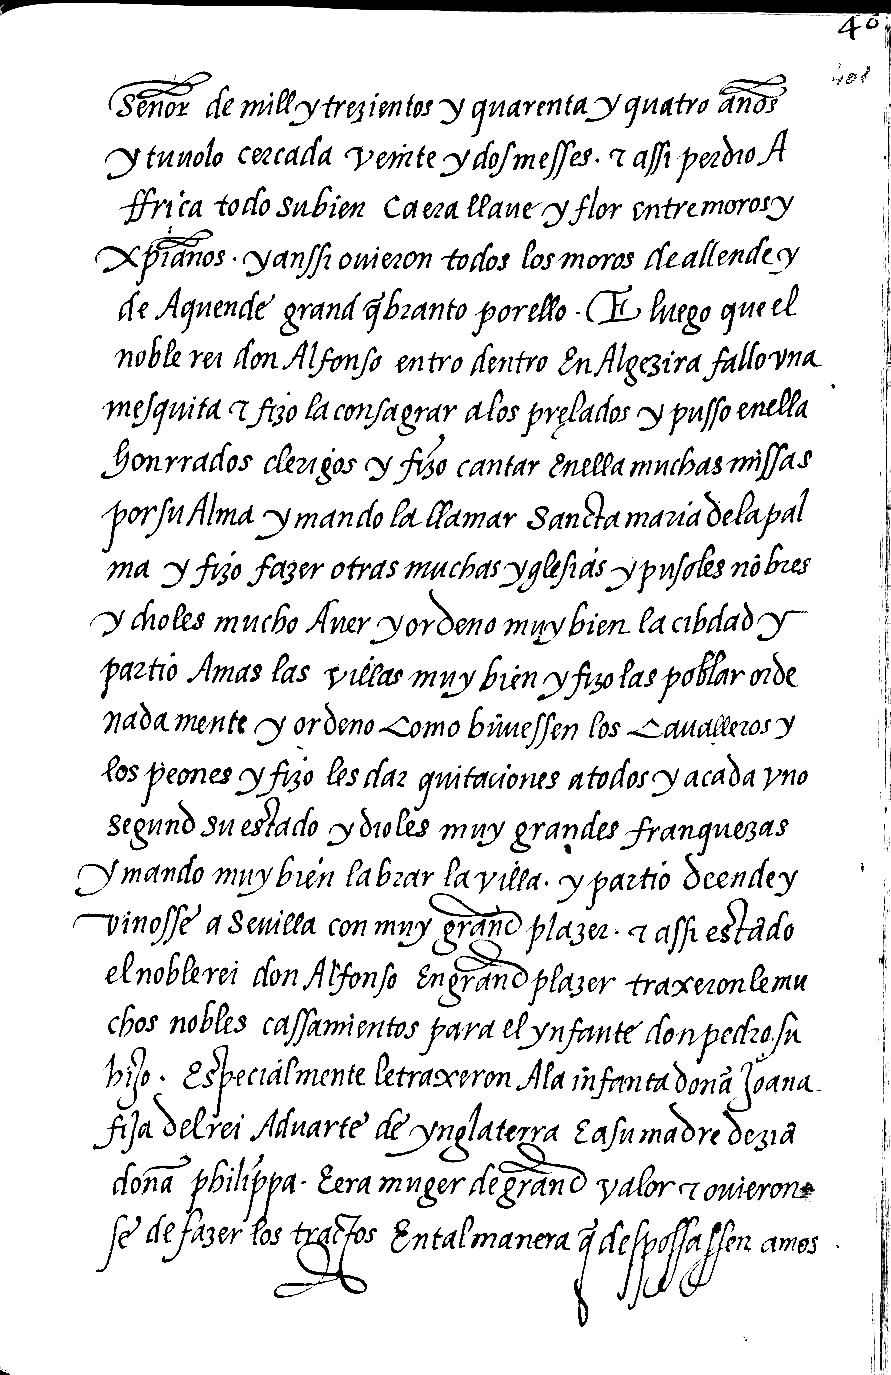 40
401
Señor de mill y trezientos y quarenta y quatro años
y tuuolo cercada veinte y dos messes. ꞇ assi perdio A
ffrica todo su bien Ca era llaue y flor entre moros y
xp̃ianos. y anssi ouieron todos los moros de allende y
de Aquende grand q̃branto por ello. E luego que el
noble rei don Alfonso entro dentro En Algezira fallo vna
mesquita ꞇ fizo la consagrar a los pręlados y pusso en ella
honrrados clerigos y fizo cantar En ella muchas missas
por su Alma y mando la llamar Sancta maria de la pal
ma y fizo fazer otras muchas yglesias y pusoles nõbres
y dioles mucho Auer y ordeno muy bien la cibdad y
partio Amas las villas muy bien y fizo las poblar orde
nada mente y ordeno Como biuiessen los Caualleros y
los peones y fizo les dar quitaciones a todos y a cada vno
segund su estado y dioles muy grandes franquezas
y mando muy bien labrar la villa. y partio deende y
vinosse a Seuilla con muy grand plazer. ꞇ assi estãdo
el noble rei don Alfonso En grand plazer traxeron le mu
chos nobles cassamientos para el ynfante don pedro su
hijo. Especialmente le traxeron A la infanta doña Joana
fija del rei Aduarte de ynglaterra E a su madre deziã
doña philippa. E era muger de grand valor ꞇ ouieron
se de fazer los tractos En tal manera q̃ despossassen amos